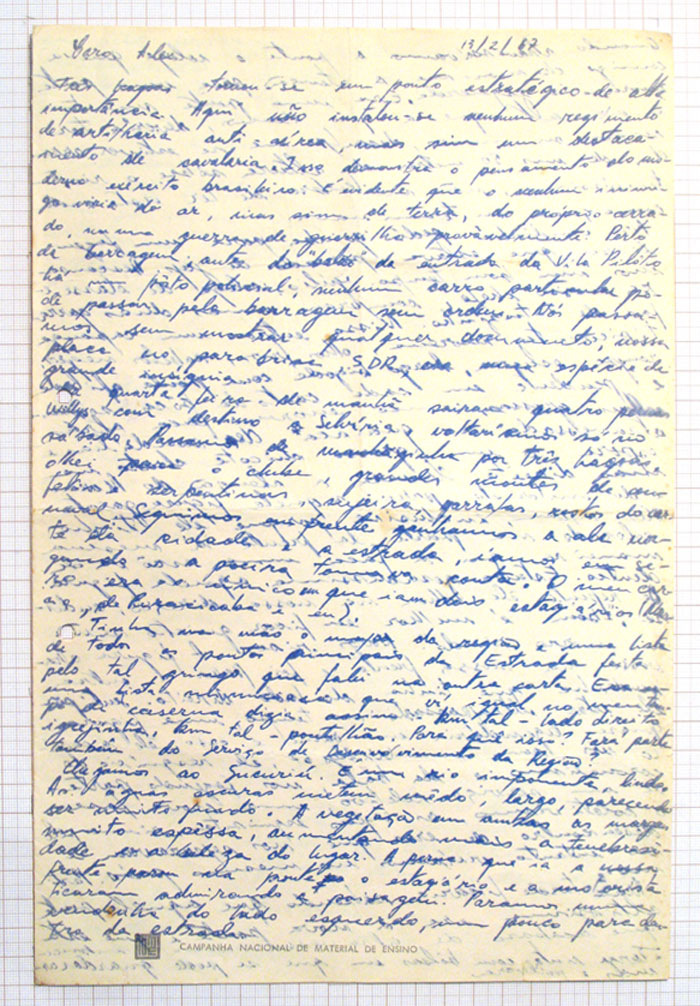 Caro Arlen 13/2/67
Três Lagoas tornou-se um ponto estratégico de alta
importância. Aqui não instalou-se nenhum regimento
de artilharia anti-aérea, mas sim um destaca-
mento de cavalaria. Isso demonstra o pensamento do mo-
derno exército brasileiro. Evidente que o nenhum inimi-
go viria do ar, mas sim de terra, do próprio cerra-
do, numa guerra de guerrilha provavelmente. Perto
da barragem, antes da entrada da Vila Piloto
há um pôsto policial, nenhum carro particular po-
de passar pela barragem sem ordem. Nós passa-
mos sem mostrar qualquer documento, nossa
placa no parabrisa SDR, era uma espécie de
grande insígnia.
quarta-feira de manhã sairam quatro
Willys com destino a Selvíria e voltaríamos só no
sábado. Passamos de manhãzinha por três lagoas
olhei para o clube, grandes montes de con-
feti e serpentinas, sujeira, garrafas, restos do car-
naval. Seguimos em frente ganhamos a
da cidade e a estrada, iamos em se-
gundo e a poeira tomava conta. O meu car-
ro era o único em que iam dois estagiários (
de Piracicaba e eu)
Tinha na mão o mapa da região e uma lista
de todos os pontos principais da Estrada feita
pelo tal gringo que falei na outra carta. Era
uma lista numerada que vi igual no
de caserna dizia assim: km tal - lado direito
igrejinha, km tal - pontilhão. Para que isso? Fará parte
também do Serviço de Desenvolvimento da Região?
Chegamos ao Sucuriú. É um rio imponente, lindo.
As águas escuras metem mêdo, largo, parecendo
ser muito fundo. A vegetação em ambas as margens
muito espêssa, aumentando mais a tenebrosi-
dade e a beleza do lugar. A perua que ia a nossa
frente parou na ponte e o estagiário e a motorista
ficaram admirando a paisagem. Paramos numa
vendinha do lado esquerdo, um pouco para den-
tro da estrada.
CAMPANHA NACIONAL DE MATERIAL DE ENSINO